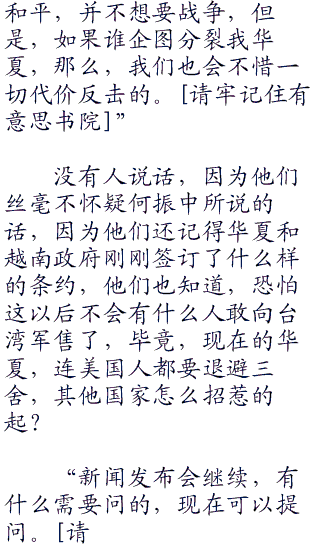 和平，并不想要战争，但
是，如果谁企图分裂我华
夏，那么，我们也会不惜一
切代价反击的。[请牢记住有
意思书院]”
没有人说话，因为他们
丝毫不怀疑何振中所说的
话，因为他们还记得华夏和
越南政府刚刚签订了什么样
的条约，他们也知道，恐怕
这以后不会有什么人敢向台
湾军售了，毕竟，现在的华
夏，连美国人都要退避三
舍，其他国家怎么招惹的
起？
“新闻发布会继续，有
什么需要问的，现在可以提
问。[请